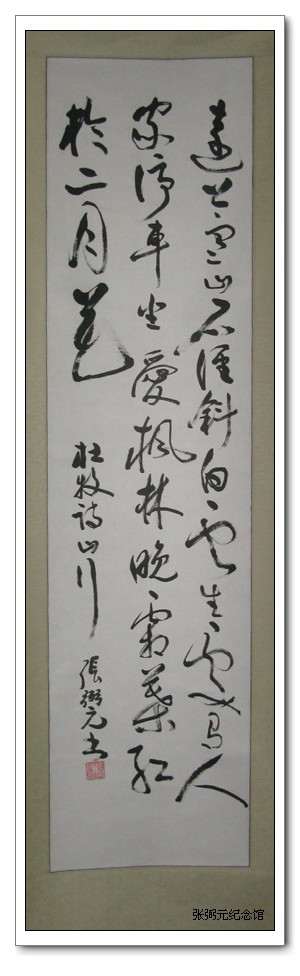 遠上寒山石徑斜白雲生處有人
家停車坐愛楓林晚霜葉紅
於二月花
杜牧詩山行
張弼元書
张弼元纪念馆